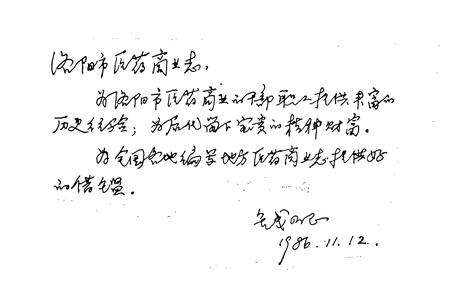 洛阳市医药商业志，
为洛阳市医药商业的干部职工提供丰富的
历史经验；为后代留下宝贵的精神财富。
为全国各地编写地方医药商业志提供好
的借鉴。
1986.11.12.